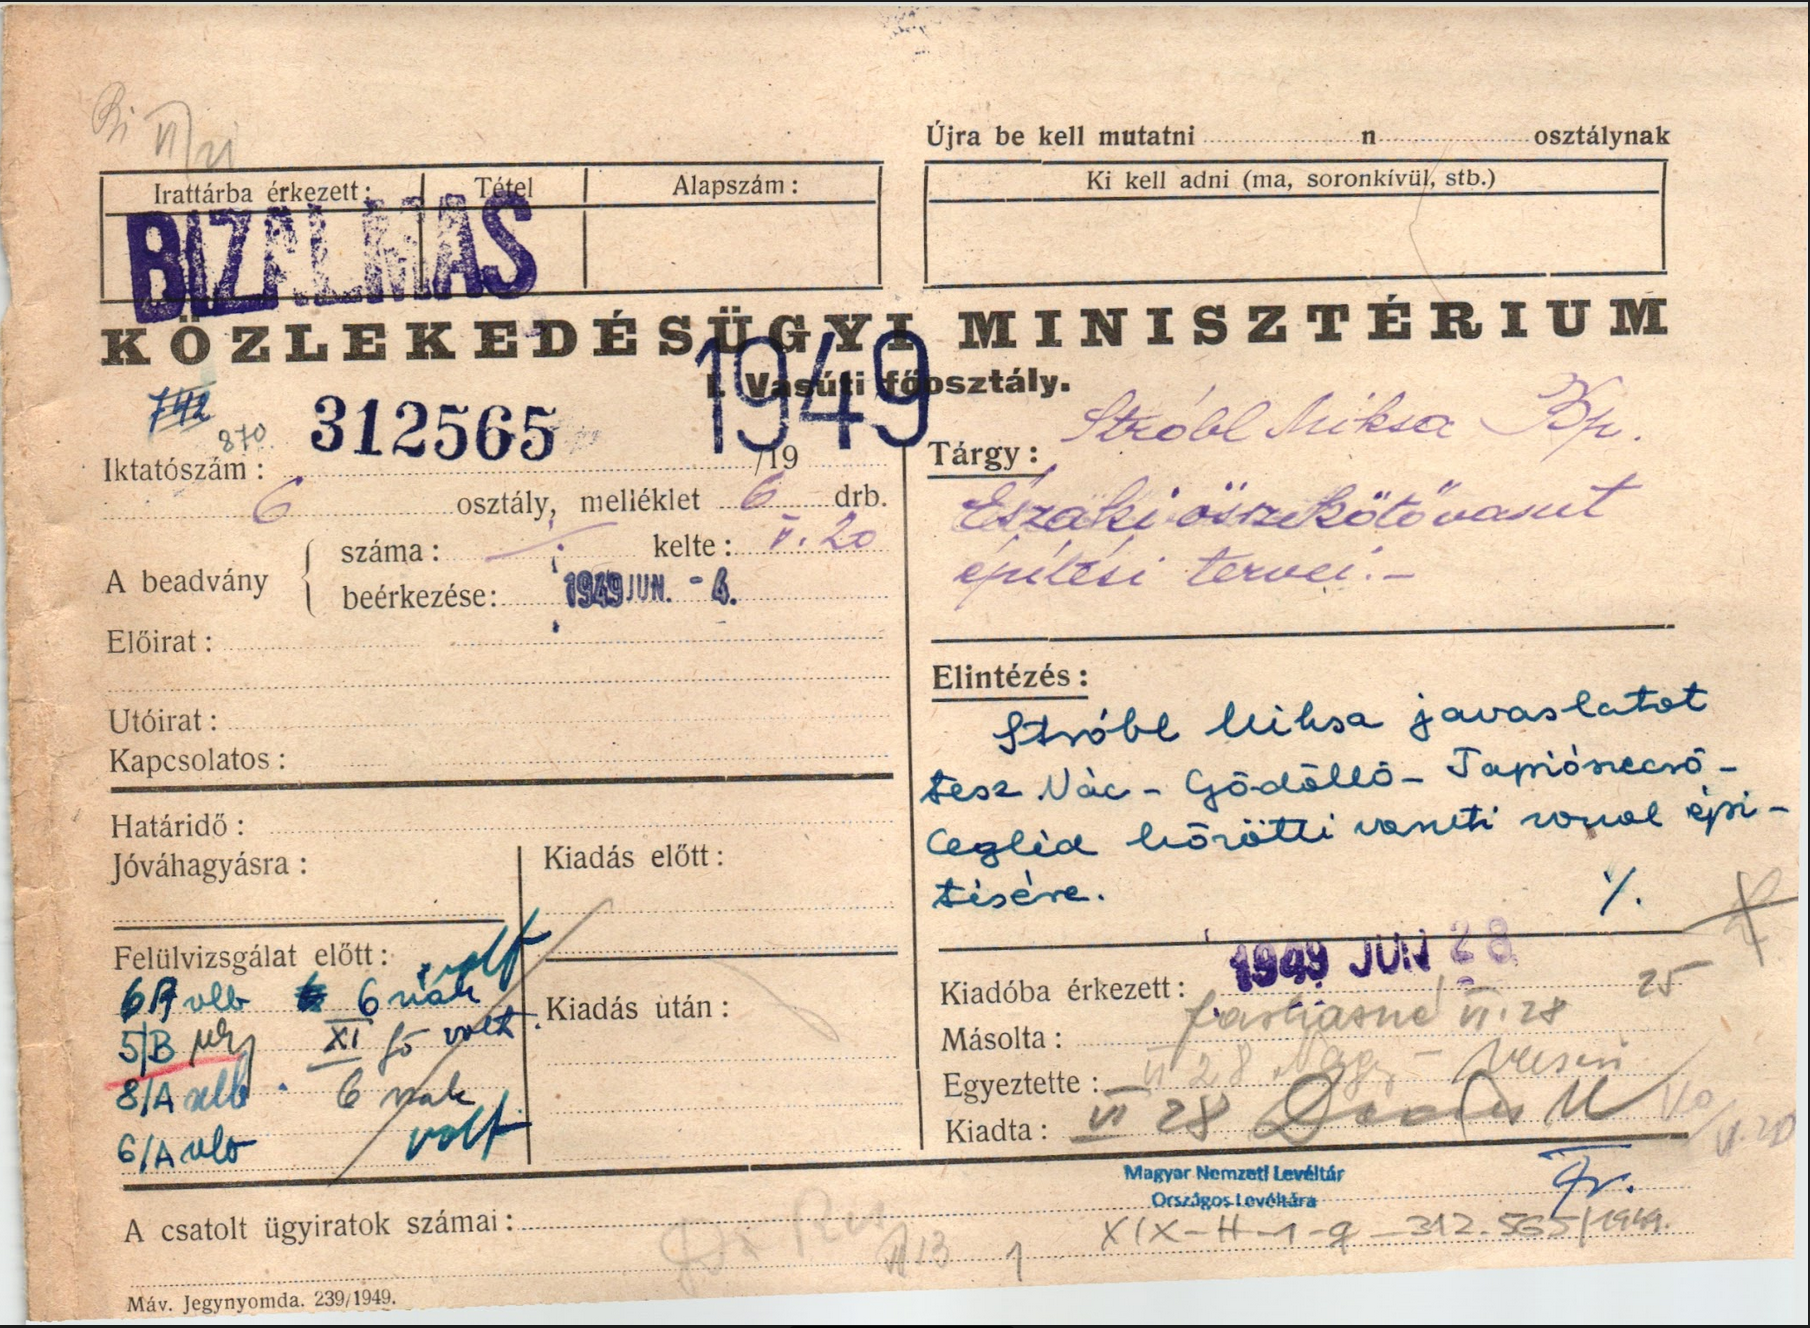 VI/21
Újra be kell mutatni n osztálynak
Irattárba érkezett: Tétel Alapszám:
Ki kell adni (ma, soronkívül, stb.)
BIZALMAS
KÖZLEKEDÉSÜGYI MINISZTÉRIUM
I. Vasúti főosztály.
1949
742
870
312565
Iktatószám: /19
6 osztály, melléklet 6 drb.
A beadvány
száma: kelte: V. 20
beérkezése: 1949 JUN. - 4.
Előirat:
Utóirat:
Kapcsolatos:
Határidő:
Jóváhagyásra:
Kiadás előtt:
Felülvizsgálat előtt: volt
6 nak
5/B XI fő volt.
8/A 6 nak
6/A volt
Kiadás után:
Tárgy: Stróbl Miksa Bp.
Északi összekötővasut
építési tervei.-
Elintézés:
Stróbl Miksa javaslatot
tesz Vác - Gödöllő - Tapiószecső -
Cegléd közötti vasuti vonal épí-
tésére.
%.
Kiadóba érkezett: 1949 JUN 28
25
Másolta: VI. 28
Egyeztette: VI 28 Nagy -
Kiadta: VI 28
Magyar Nemzeti Levéltár
Országos Levéltára
A csatolt ügyiratok számai:
XIX-H-1-q-312.565/1949.
1
Máv. Jegynyomda. 239/1949.